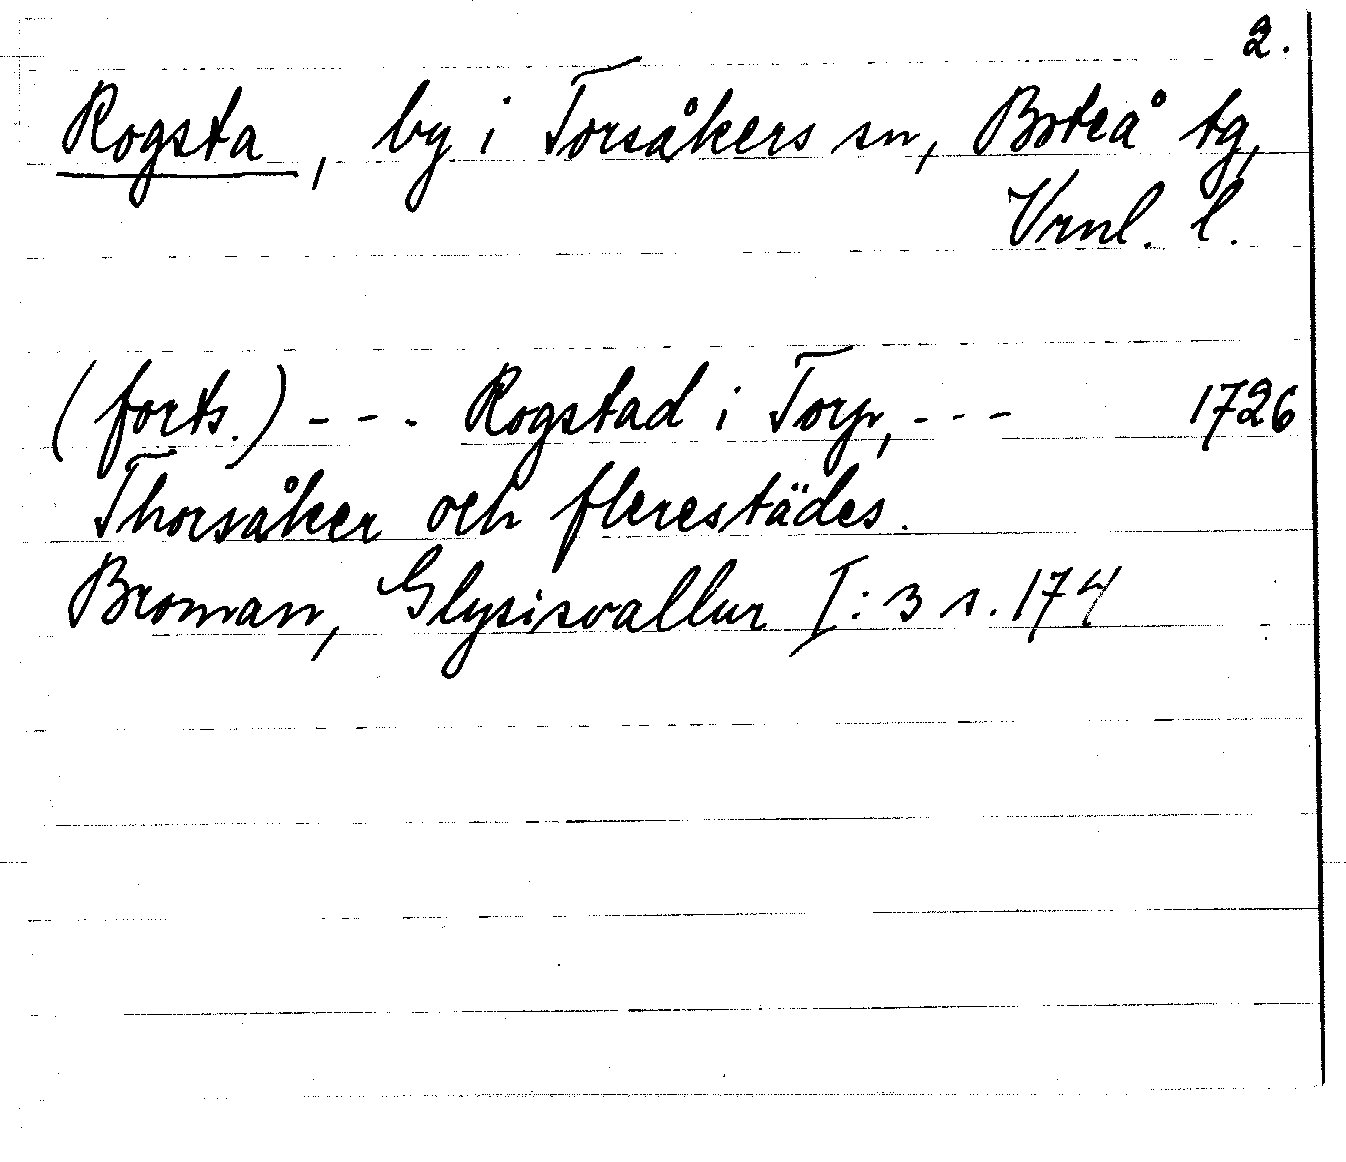 2.
Rogsta, by i Torsåkers sn, Boteå tg,
Vrnl. l.
(forts.) - - - Rogstad i Torp, - - - 1726
Thorsåker och flerestädes.
Broman, Glysisvallur I:3 s. 174